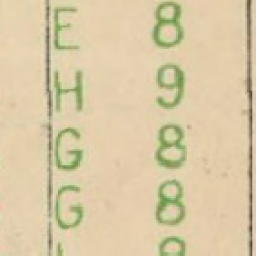 E 8
H 9
G 8
G 8